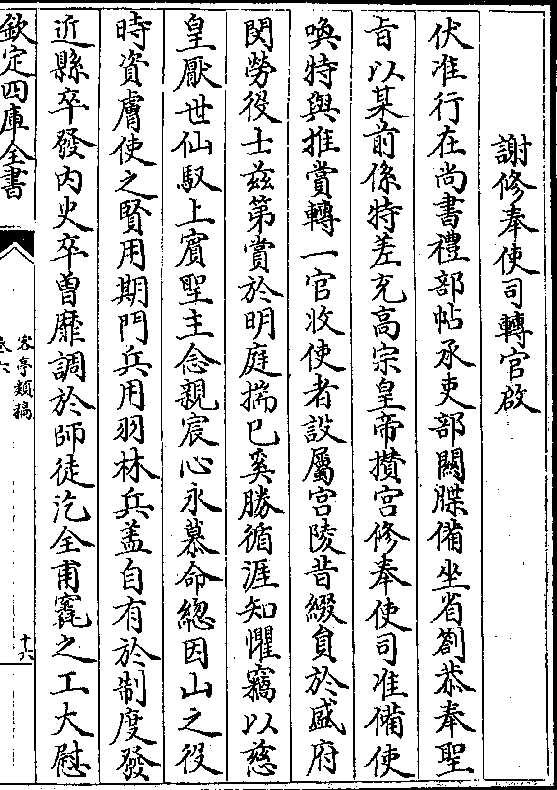 謝修奉使司轉官啟
伏准行在尚書禮部帖承吏部關牒備坐省劄恭奉聖
旨以某前係特差充高宗皇帝攢宮修奉使司准備使
喚特與推賞轉一官收使者設屬宮陵昔綴員於盛府
閔勞役士茲第賞於明庭揣已奚勝循涯知懼竊以慈
皇厭世仙馭上賓聖主念親宸心永慕命總因山之役
時資膚使之賢用期門兵用羽林兵蓋自有於制度發
近縣卒發內史卒曽靡調於師徒汔全甫竁之工大慰
欽定四庫全書
客亭類稿
卷六
十六